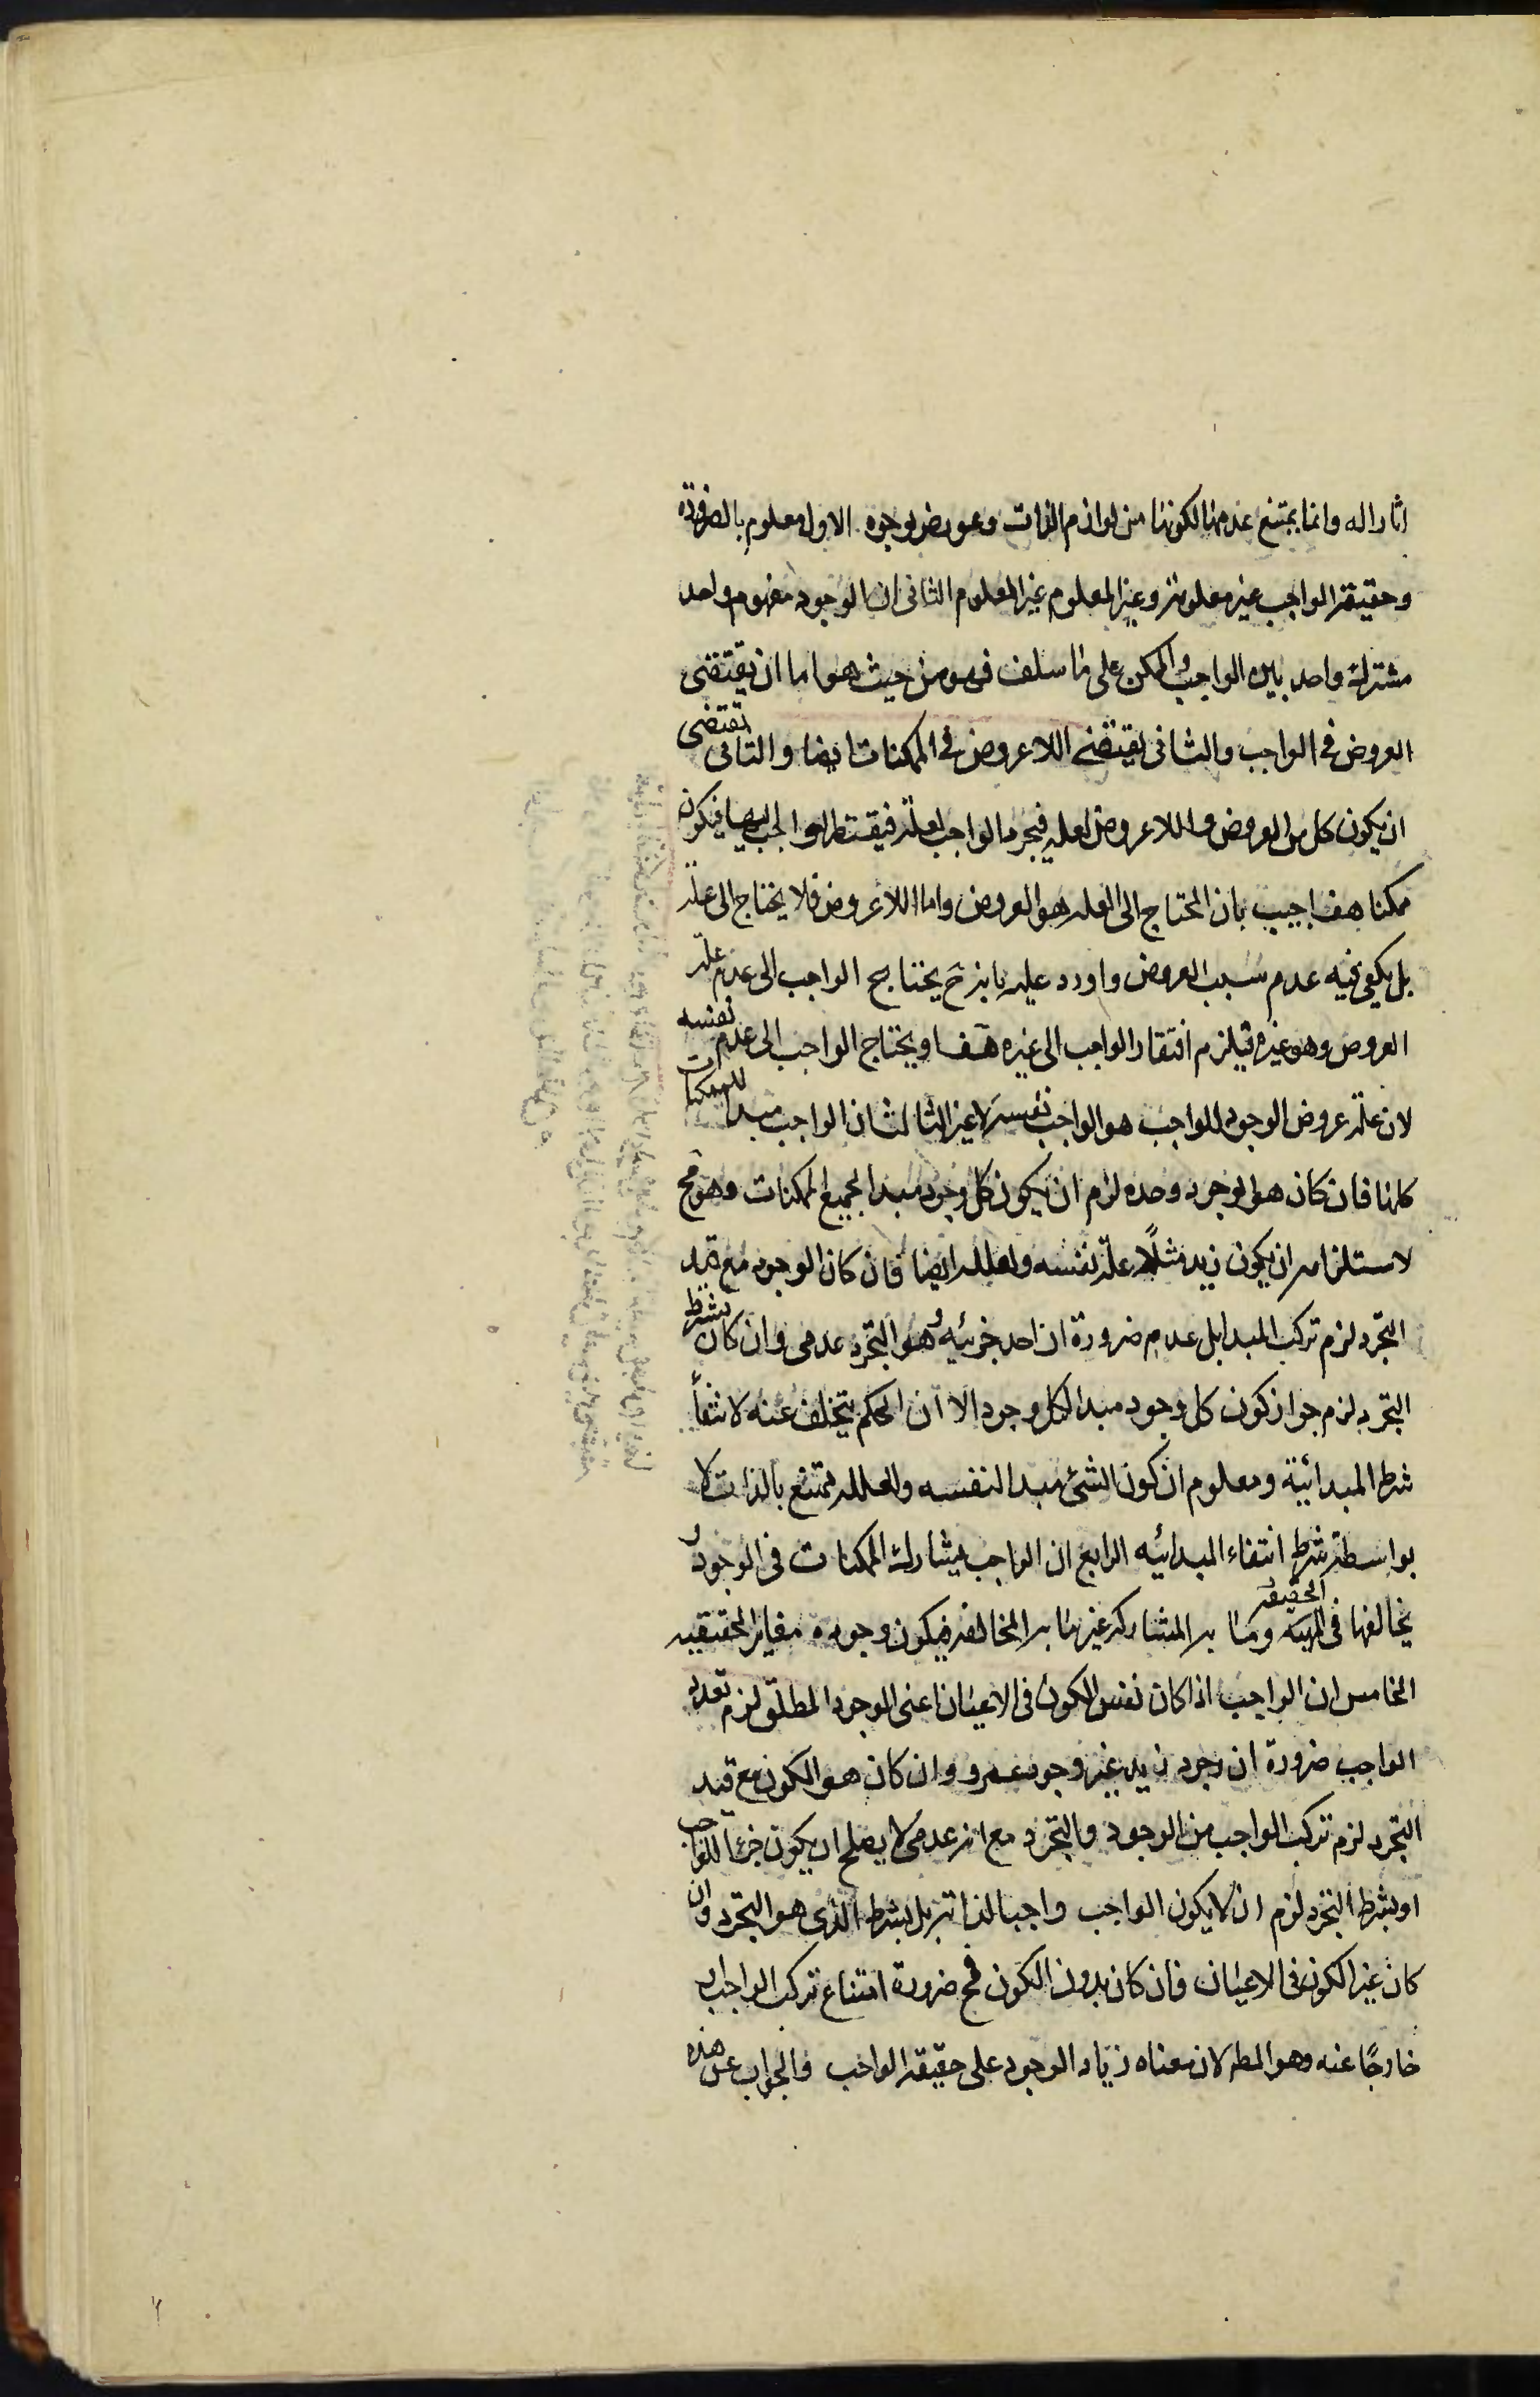 اثار اله وانما يمتنع عدمها لكونها من لوازم الذات وعورض بوجوه الاول معلوم بالضرورة
وحقيقة الواجب غير معلومة وغير المعلوم غير المعلوم الثانى ان الوجود مفهوم واحد
مشترك واحد بين الواجب والممكن على ما سلف فهو من حيث هو اما ان يقتضى
العروض فى الواجب والثانى يقتضى اللاعروض فى الممكنات ايضا والثانى يقتضى
ان يكون كل من العروض واللاعروض لعلة فتجرد الواجب لعلة فيفتقر الواجب اليها فيكون
ممكنا هف اجيب بان المحتاج الى العلة هو العروض واما اللاعروض فلا يحتاج الى علة
بل يكفى فيه عدم سبب العروض واورد عليه بانه ح يحتاج الواجب الى عدم علة
العروض وهو غيره فيلزم افتقار الواجب الى غيره هف او يحتاج الواجب الى عدم نفسه
لان علة عروض الوجود للواجب هو الواجب نفسه لا غير الثالث ان الواجب مبدا للممكنات
كلها فان كان هو الوجود وحده لزم ان يكون كل وجود مبدا لجميع الممكنات وهو مح
لاستلزامه ان يكون زيد مثلًا علة نفسه ولعلله ايضا فان كان الوجود مع قيد
التجرد لزم تركب المبدا بل عدمه ضرورة ان احد جزئيه وهو التجرد عدمى وان كان بشرط
التجرد لزم جواز كون كل وجود مبدا لكل وجود الا ان الحكم يتخلف عنه لانتفاء
شرط المبدائية ومعلوم ان كون الشئ مبدا لنفسه ولعلله ممتنع بالذات لا
بواسطة شرط انتفاء المبدائيه الرابع ان الواجب يشارك الممكنات فى الوجود و
يخالفها فى الحقيقة وما به المشاركة غير ما به المخالفة فيكون وجوده مغاير الحقيقيه
الخامس ان الواجب اذا كان نفس الكون فى الاعيان اعنى الوجود المطلق لزم تعدد
الواجب ضرورة ان وجود زيد غير وجود عمرو وان كان هو الكون مع قيد
التجرد لزم تركب الواجب من الوجود والتجرد مع انه عدمى لا يصلح ان يكون جزءا للواجب
او بشرط التجرد لزم ان لا يكون الواجب واجبا لذاته بل بشرط الذى هو التجرد وان
كان غير الكون فى الاعيان فان كان بدون الكون فمح ضرورة امتناع تركب الواجب او
خارجًا عنه وهو المط لان معناه زياد الوجود على حقيقة الواجب والجواب عن هذه